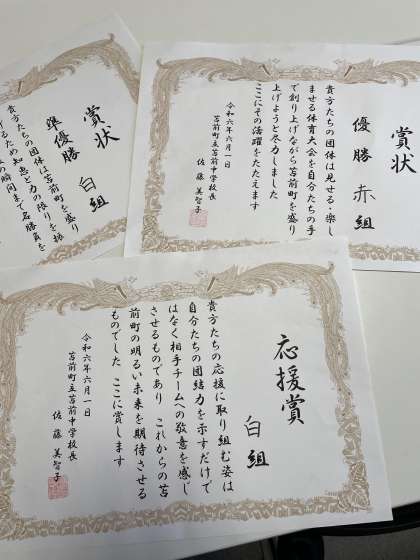 賞状
優勝 赤組
貴方たちの団体は見せる・楽し
ませる体育大会を自分たちの手
で創り上げながら苫前町を盛り
上げようと尽力しました
ここにその活躍をたたえます
令和六年六月一日
苫前町立苫前中学校長
佐藤美智子
賞状
準優勝 白組
貴方たちの団体は苫前町を盛り
げるため知恵と力の限りを振
の瞬間まで名勝負を
応援賞
白組
貴方たちの応援に取り組む姿は
自分たちの団結力を示すだけで
はなく相手チームへの敬意を感じ
させるものであり これからの苫
前町の明るい未来を期待させる
ものでした ここに賞します
令和六年六月一日
苫前町立苫前中学校長
佐藤美智子